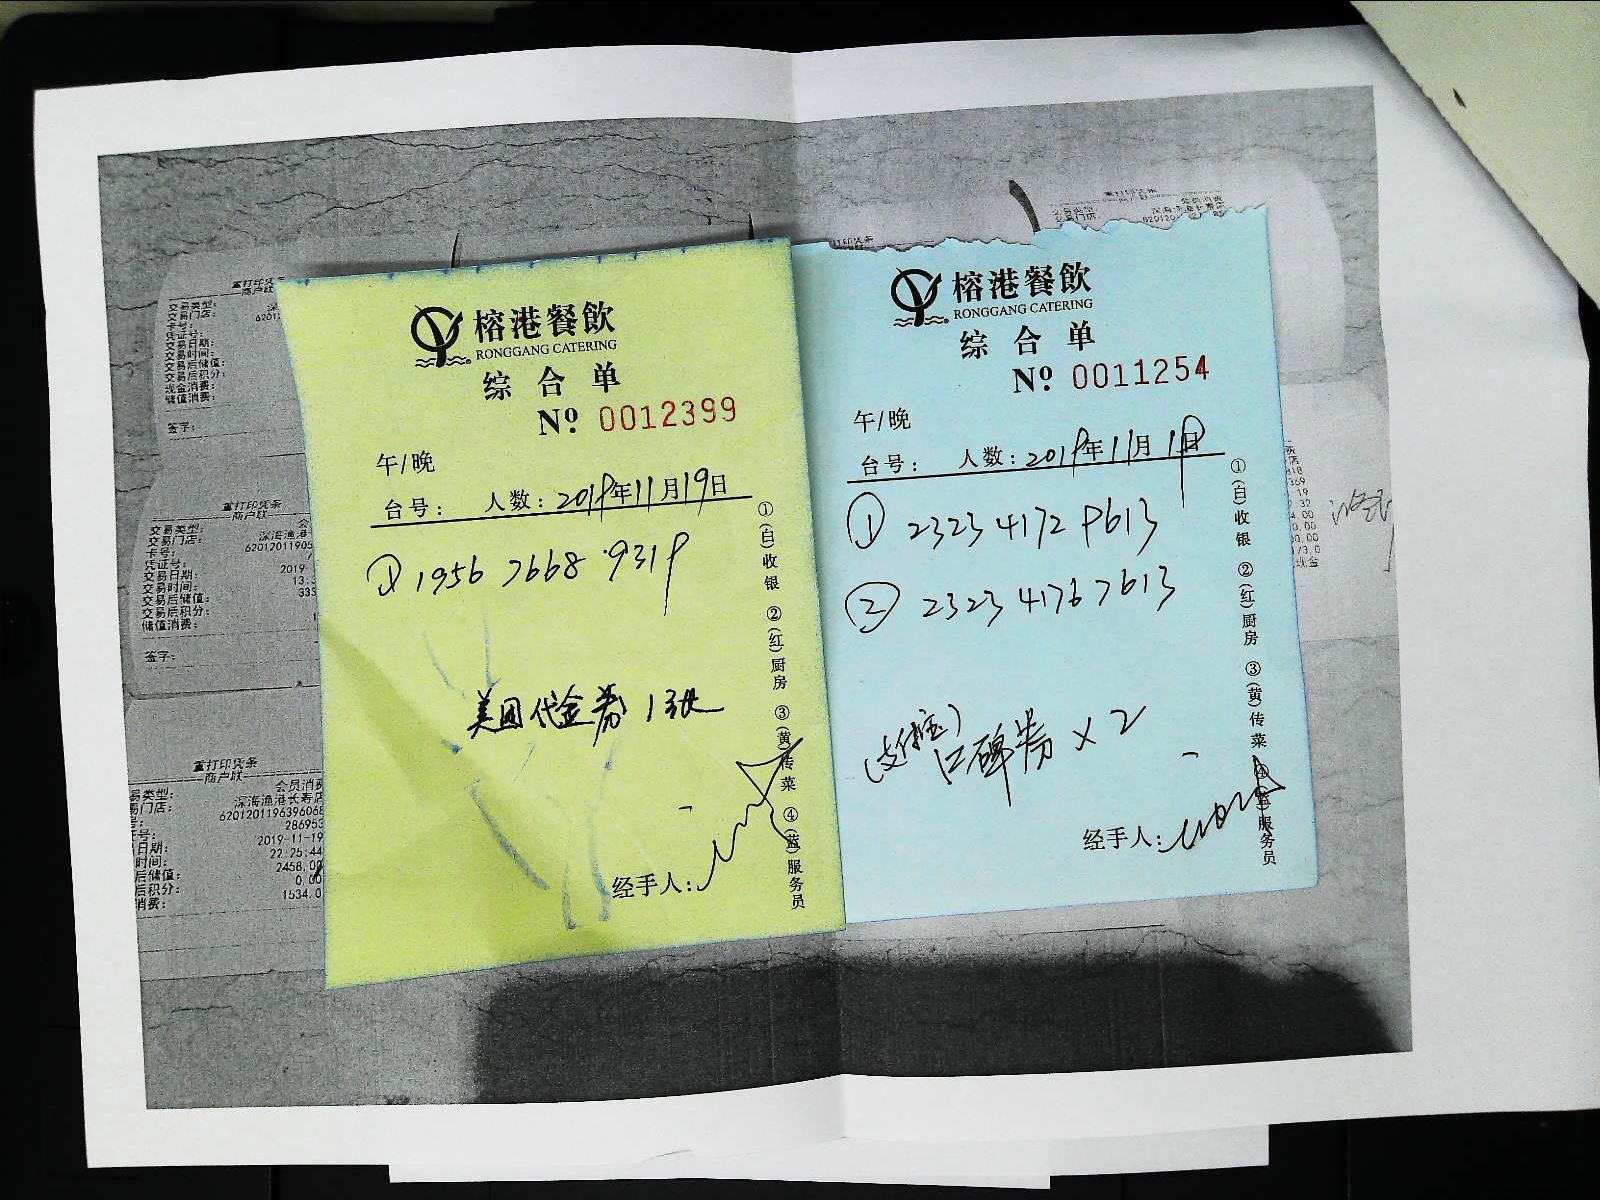 榕港餐飲
RONGGANG CATERING
综合单
Nº 0012399
午/晚
台号: 人数: 2019年11月19日
① 1956 7668 9319
美团代金券 1张
经手人:
①(白)收银 ②(红)厨房 ③(黄)传菜 ④(蓝)服务员
榕港餐飲
RONGGANG CATERING
综合单
Nº 0011254
午/晚
台号: 人数: 2019年11月19日
① 2323 4172 9613
② 2323 4176 7613
(支付宝)
口碑券 × 2
经手人:
①(白)收银 ②(红)厨房 ③(黄)传菜 ④(蓝)服务员
重打印凭条
商户联
交易类型:
交易门店:
卡号: 6201
凭证号:
交易日期:
交易时间:
交易后储值:
交易后积分:
现金消费:
储值消费:
签字:
重打印凭条
商户联
交易类型:
交易门店: 深海渔港
卡号: 62012011905
凭证号:
交易日期: 2019-
交易时间: 13:
交易后储值: 333
交易后积分:
储值消费:
签字:
重打印凭条
商户联
易类型: 会员消费
易门店: 深海渔港长寿店
6201201196396068
号: 286953
日期: 2019-11-19
时间: 22:25:44
后储值: 2458.00
后积分: 0.00
消费: 1534.0
重打印凭条